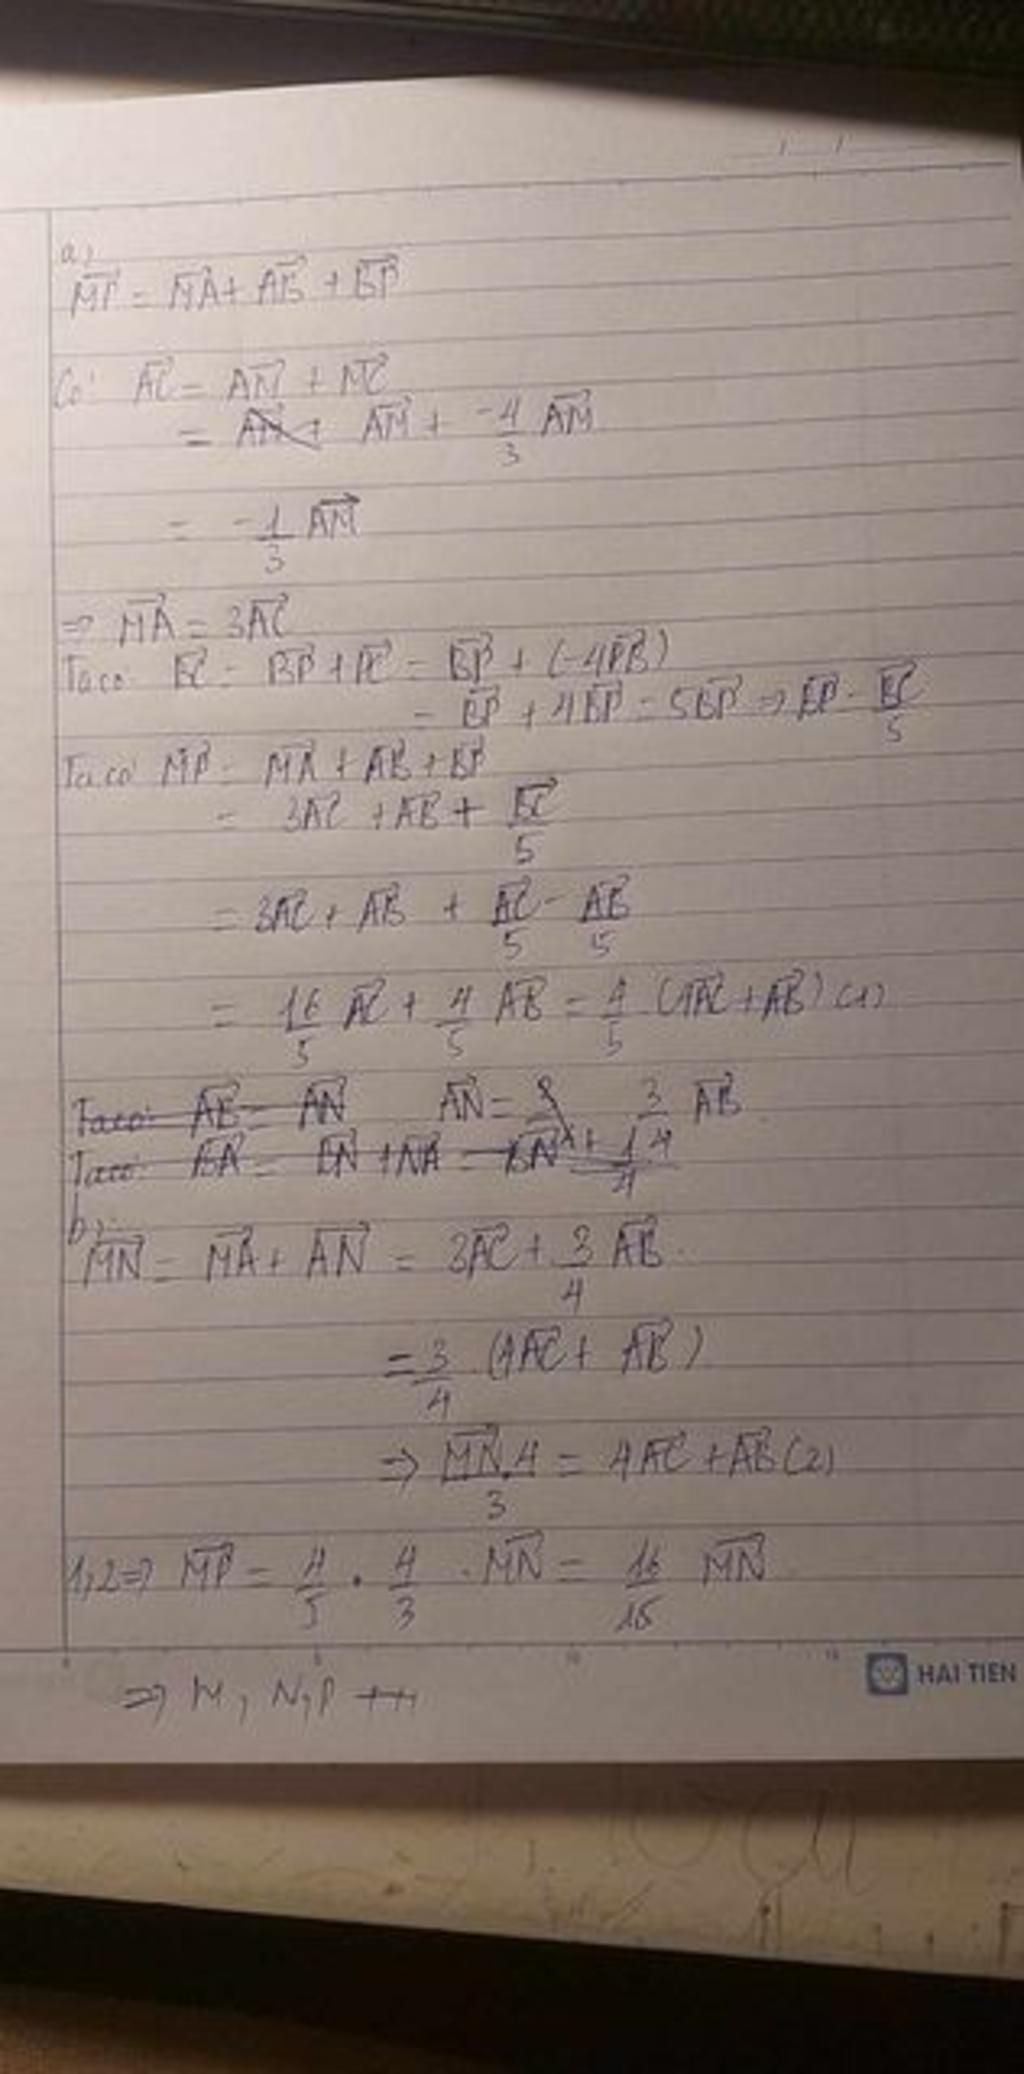 a)
MP = MA + AB + BP
Có: AC = AM + MC
= AM + AM + -4/3 AM
= -1/3 AM
=> MA = 3AC
Ta có: BC = BP + PC = BP + (-4PB)
= BP + 4BP = 5BP => BP = BC/5
Ta có MP = MA + AB + BP
= 3AC + AB + BC/5
= 3AC + AB + AC/5 - AB/5
= 16/5 AC + 4/5 AB = 4/5 (4AC + AB) (1)
Ta có: AB = AN AN = 3/4 AB
Ta có: BA = BN + NA = BN + 1/4
b)
MN = MA + AN = 3AC + 3/4 AB
= 3/4 (4AC + AB)
=> MN.4/3 = 4AC + AB (2)
1,2 => MP = 4/5 . 4/3 . MN = 16/15 MN
HAI TIEN
=> M, N, P